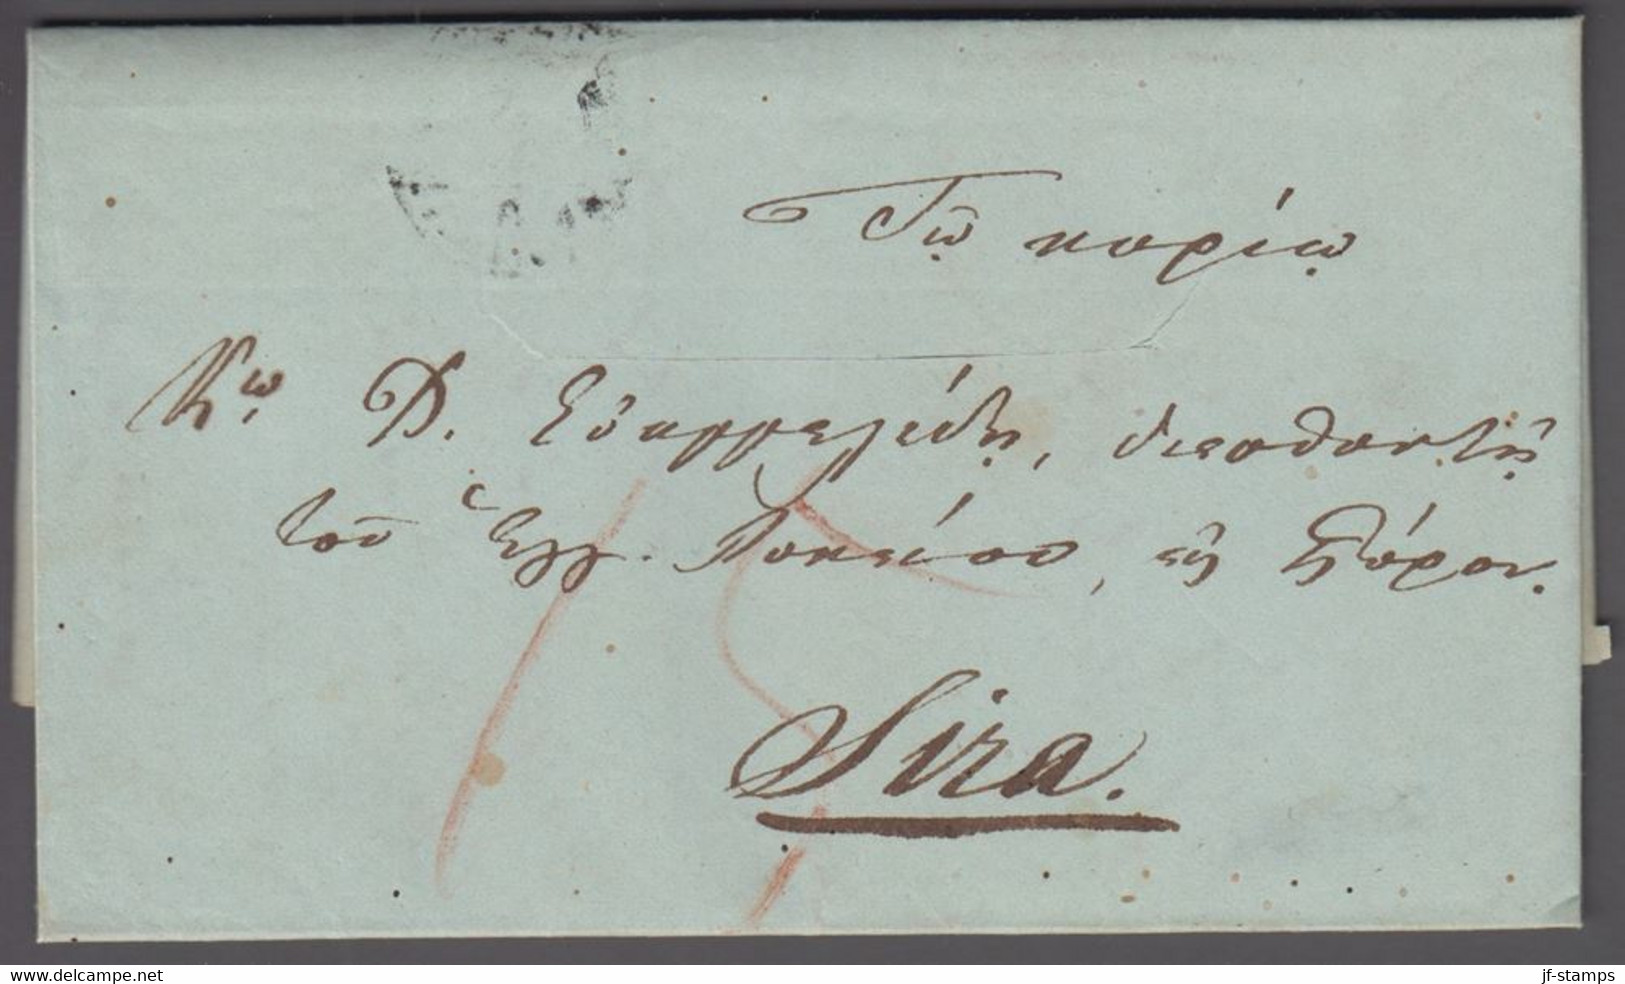 Τῷ κυρίῳ
Κῳ. Δ. Εὐαγγελίδῃ, διευθυντῇ
τοῦ Ἑλλ. Λυκείου, εἰς Σῦρον.
Sira.
www.delcampe.net
jf-stamps